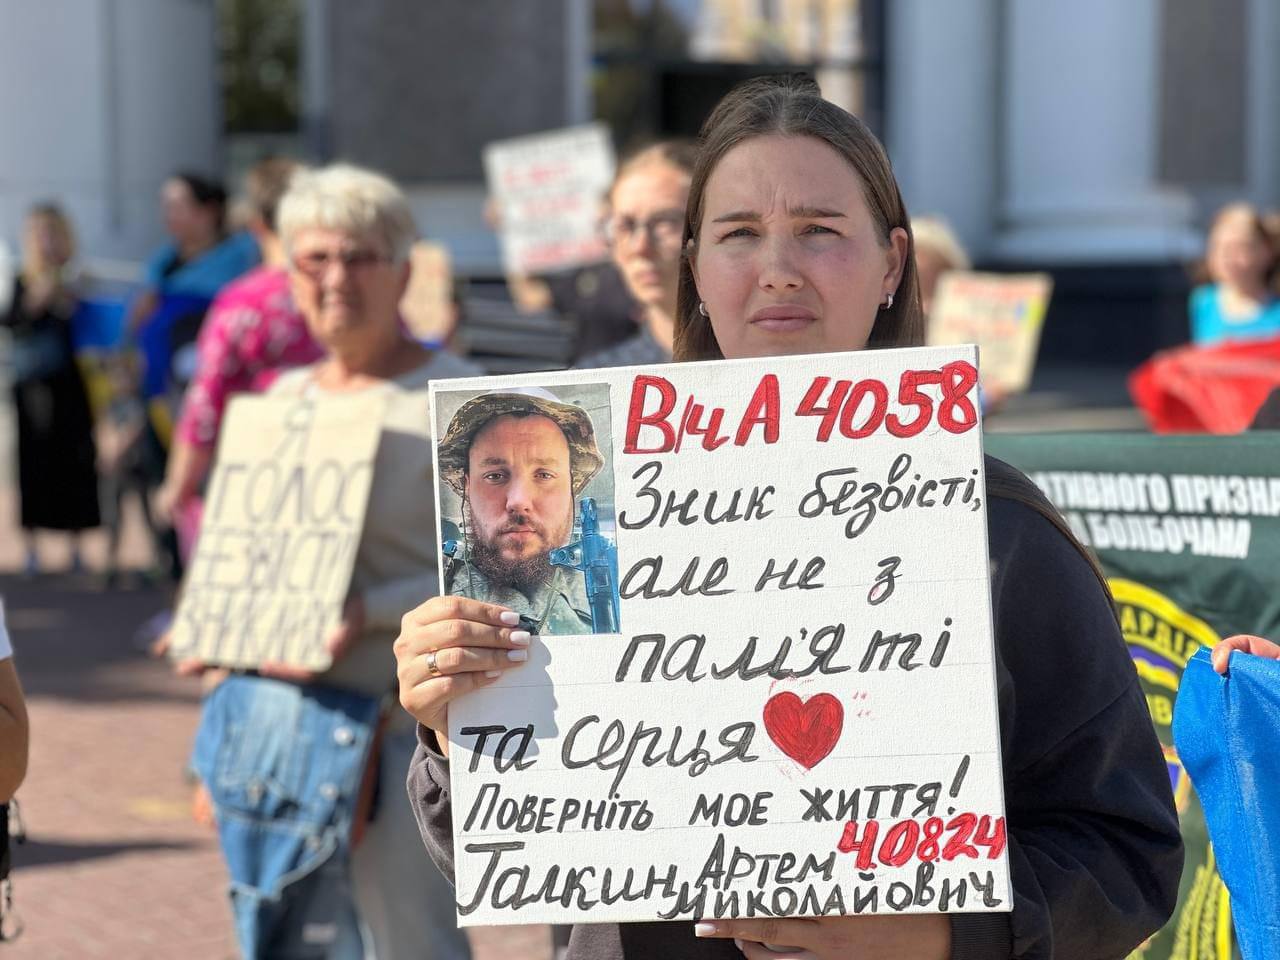 В/ч А 4058
Зник безвісті,
але не з
пам'яті
та серця
Поверніть моє життя!
4.08.24
Галкин Артем
Миколайович
Я
ГОЛОС
БЕЗВІСТІ
ЗНИКЛИХ
АТИВНОГО ПРИЗНА
БОЛБОЧАНА